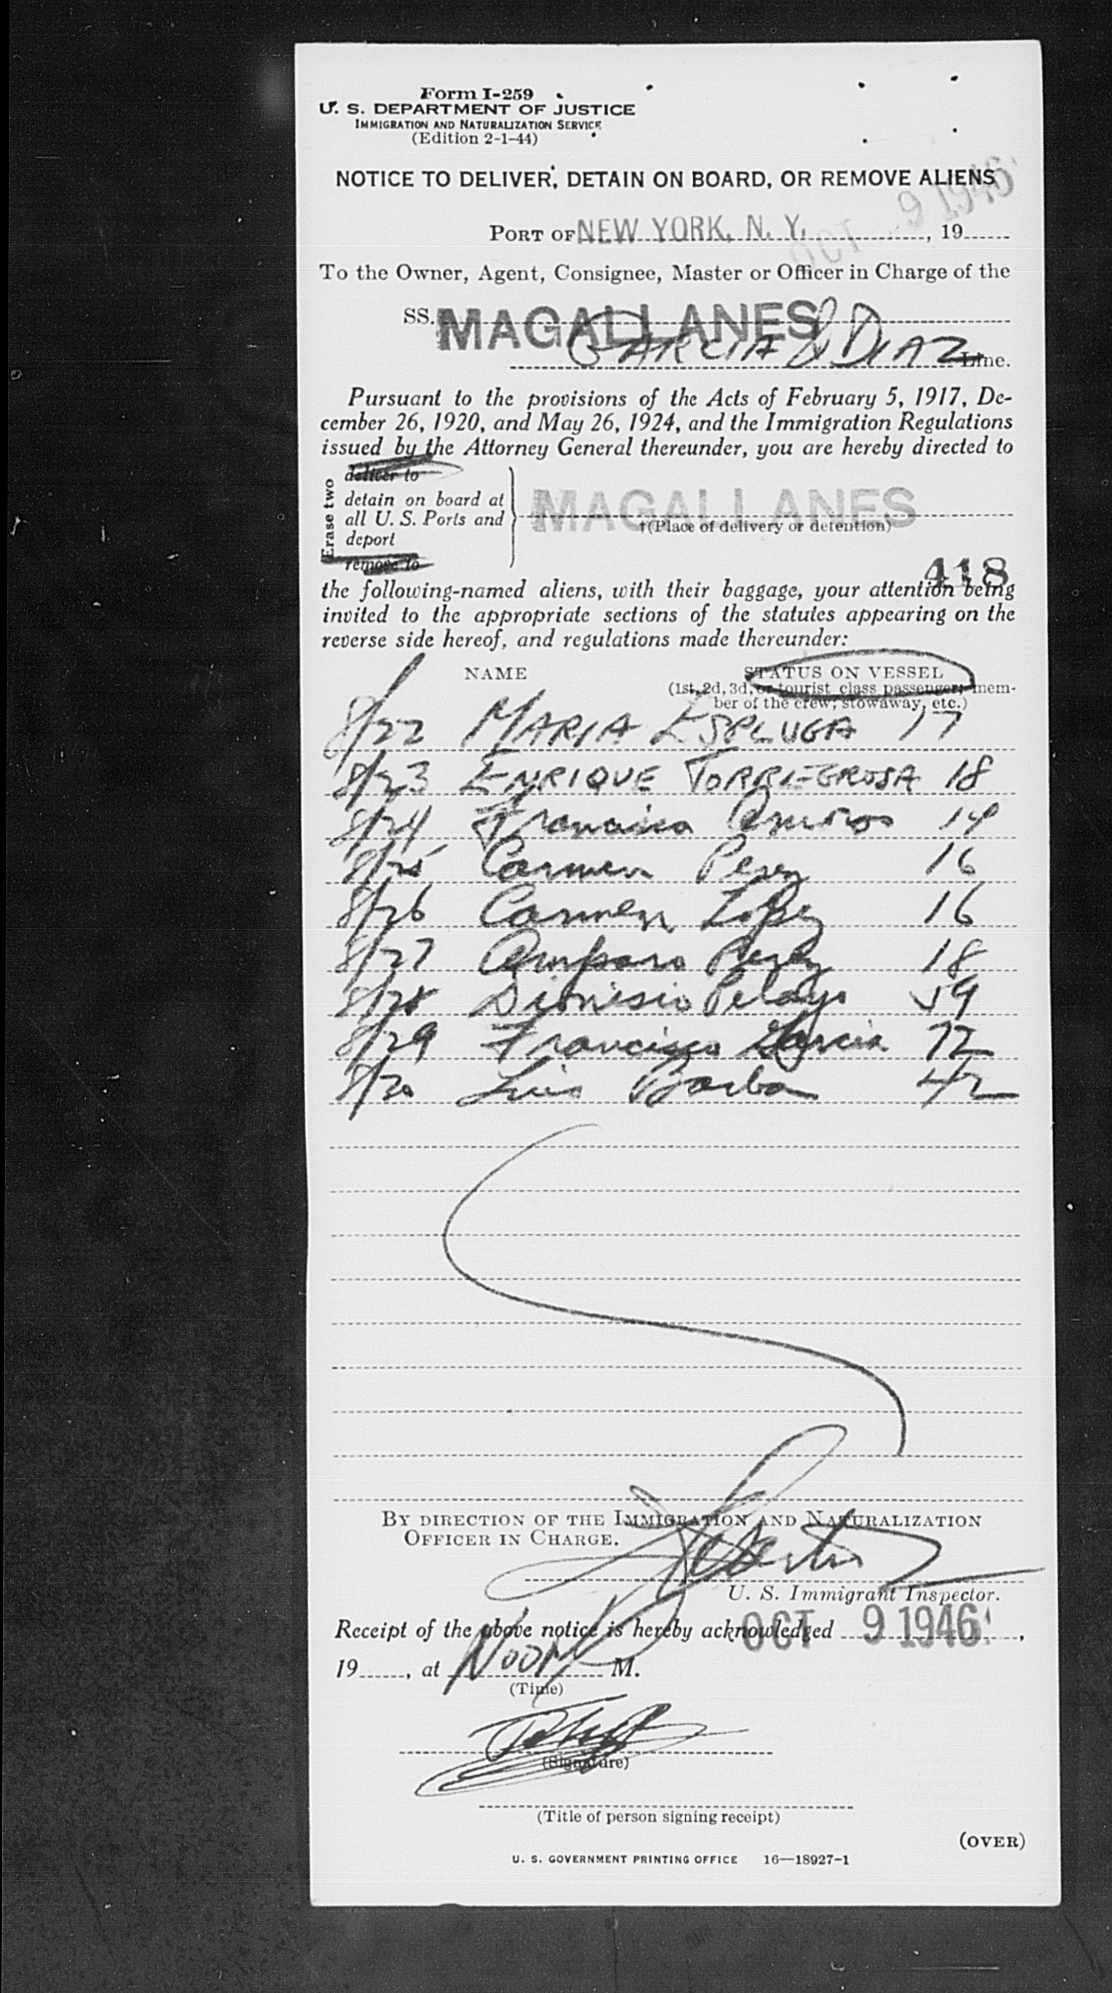 Form I-259
U. S. DEPARTMENT OF JUSTICE
IMMIGRATION AND NATURALIZATION SERVICE
(Edition 2-1-44)
NOTICE TO DELIVER, DETAIN ON BOARD, OR REMOVE ALIENS
OCT 9 1946
PORT OF NEW YORK, N. Y. , 19
To the Owner, Agent, Consignee, Master or Officer in Charge of the
SS. MAGALLANES
GARCIA & DIAZ Line.
Pursuant to the provisions of the Acts of February 5, 1917, De-
cember 26, 1920, and May 26, 1924, and the Immigration Regulations
issued by the Attorney General thereunder, you are hereby directed to
Erase two
deliver to
detain on board at
all U. S. Ports and
deport
remove to
MAGALLANES
†(Place of delivery or detention)
418
the following-named aliens, with their baggage, your attention being
invited to the appropriate sections of the statutes appearing on the
reverse side hereof, and regulations made thereunder:
NAME STATUS ON VESSEL
(1st, 2d, 3d, or tourist class passenger; mem-
ber of the crew, stowaway, etc.)
8/22 MARIA ESPLUGA 17
8/23 ENRIQUE TORREGROSA 18
8/24 Francisca Amoros 14
8/25 Carmen Perez 16
8/26 Carmen Lopez 16
8/27 Amparo Perez 18
8/28 Dionisio Pelayo 59
8/29 Francisco Garcia 72
8/30 Luis Barba 42
BY DIRECTION OF THE IMMIGRATION AND NATURALIZATION
OFFICER IN CHARGE.
U. S. Immigrant Inspector.
Receipt of the above notice is hereby acknowledged OCT 9 1946 ,
19 , at NOON M.
(Time)
(Signature)
(Title of person signing receipt)
(OVER)
U. S. GOVERNMENT PRINTING OFFICE 16—18927-1